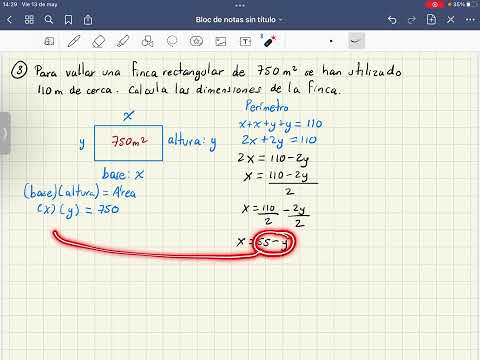 14:29 Vie 13 de may
35%
Bloc de notas sin título
③ Para vallar una finca rectangular de 750 m² se han utilizado
110 m de cerca. Calcula las dimensiones de la finca.
x
y 750m² altura: y
base: x
(base)(altura) = Área
(x)(y) = 750
Perímetro
x+x+y+y = 110
2x + 2y = 110
2x = 110-2y
x = 110-2y
2
x = 110 - 2y
2 2
x = 55-y